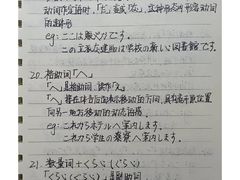 动词作定语时,
动词连体形
eg: ここは服の です。
この立派な建物は学校の新しい図書館です。
20. 格助词「へ」
「へ」是格助词, 读作「え」
「へ」接在体言后面表示移动的方向,
另一地方移动的动态
eg: これからホテルへ案内します。
これから学生の寮へ案内します。
21. 数量词+くらい(ぐらい)
「くらい(ぐらい)」是副助词